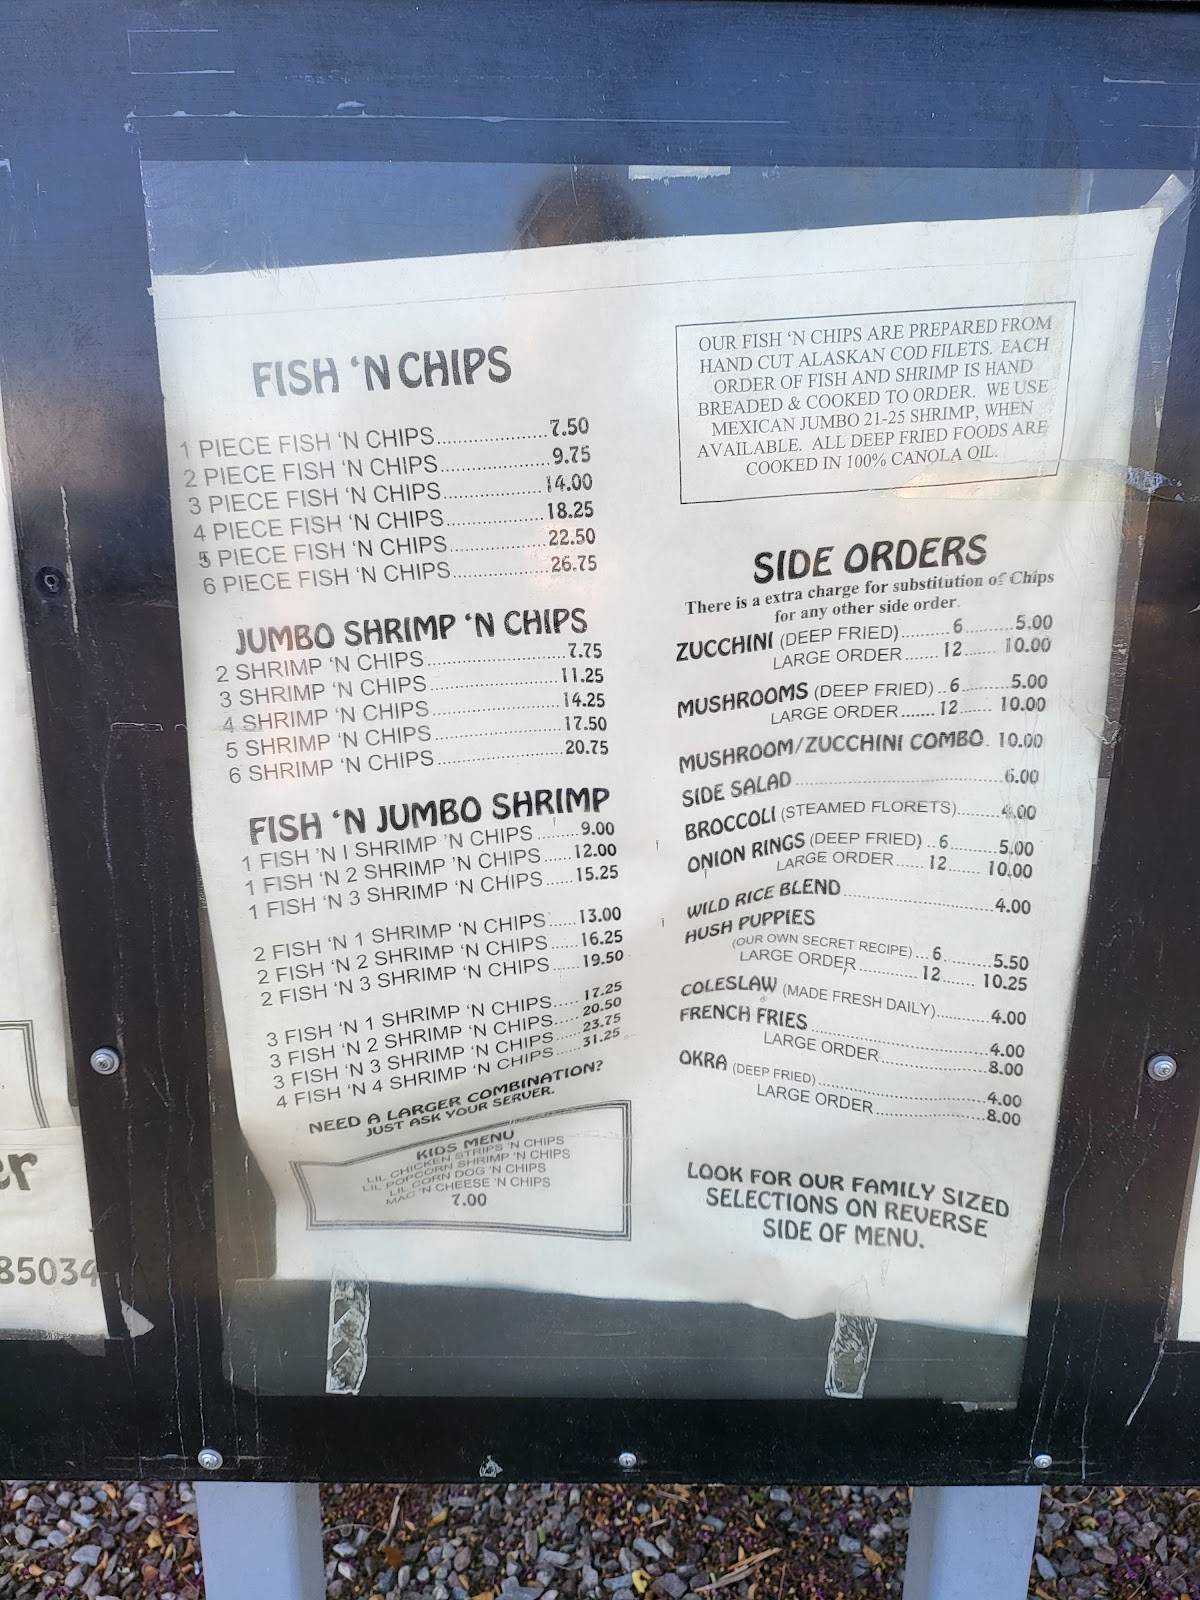 FISH 'N CHIPS
1 PIECE FISH 'N CHIPS....................7.50
2 PIECE FISH 'N CHIPS....................9.75
3 PIECE FISH 'N CHIPS...................14.00
4 PIECE FISH 'N CHIPS...................18.25
5 PIECE FISH 'N CHIPS...................22.50
6 PIECE FISH 'N CHIPS...................26.75
JUMBO SHRIMP 'N CHIPS
2 SHRIMP 'N CHIPS.........................7.75
3 SHRIMP 'N CHIPS........................11.25
4 SHRIMP 'N CHIPS........................14.25
5 SHRIMP 'N CHIPS........................17.50
6 SHRIMP 'N CHIPS........................20.75
FISH 'N JUMBO SHRIMP
1 FISH 'N 1 SHRIMP 'N CHIPS ........9.00
1 FISH 'N 2 SHRIMP 'N CHIPS......12.00
1 FISH 'N 3 SHRIMP 'N CHIPS......15.25
2 FISH 'N 1 SHRIMP 'N CHIPS......13.00
2 FISH 'N 2 SHRIMP 'N CHIPS......16.25
2 FISH 'N 3 SHRIMP 'N CHIPS......19.50
3 FISH 'N 1 SHRIMP 'N CHIPS..... 17.25
3 FISH 'N 2 SHRIMP 'N CHIPS..... 20.50
3 FISH 'N 3 SHRIMP 'N CHIPS..... 23.75
4 FISH 'N 4 SHRIMP 'N CHIPS..... 31.25
NEED A LARGER COMBINATION?
JUST ASK YOUR SERVER.
KIDS MENU
LIL CHICKEN STRIPS 'N CHIPS
LIL POPCORN SHRIMP 'N CHIPS
LIL CORN DOG 'N CHIPS
MAC 'N CHEESE 'N CHIPS
7.00
OUR FISH 'N CHIPS ARE PREPARED FROM
HAND CUT ALASKAN COD FILETS. EACH
ORDER OF FISH AND SHRIMP IS HAND
BREADED & COOKED TO ORDER. WE USE
MEXICAN JUMBO 21-25 SHRIMP, WHEN
AVAILABLE. ALL DEEP FRIED FOODS ARE
COOKED IN 100% CANOLA OIL.
SIDE ORDERS
There is a extra charge for substitution of Chips
for any other side order.
ZUCCHINI (DEEP FRIED)..........6..........5.00
LARGE ORDER....... 12...... 10.00
MUSHROOMS (DEEP FRIED)..6..........5.00
LARGE ORDER....... 12...... 10.00
MUSHROOM/ZUCCHINI COMBO. 10.00
SIDE SALAD..........................................6.00
BROCCOLI (STEAMED FLORETS)........4.00
ONION RINGS (DEEP FRIED)..6..........5.00
LARGE ORDER...... 12....... 10.00
WILD RICE BLEND..............................4.00
HUSH PUPPIES
(OUR OWN SECRET RECIPE)...6..........5.50
LARGE ORDER............12....... 10.25
COLESLAW (MADE FRESH DAILY)...........4.00
FRENCH FRIES...................................4.00
LARGE ORDER......................8.00
OKRA (DEEP FRIED)................................4.00
LARGE ORDER......................8.00
LOOK FOR OUR FAMILY SIZED
SELECTIONS ON REVERSE
SIDE OF MENU.
er
85034